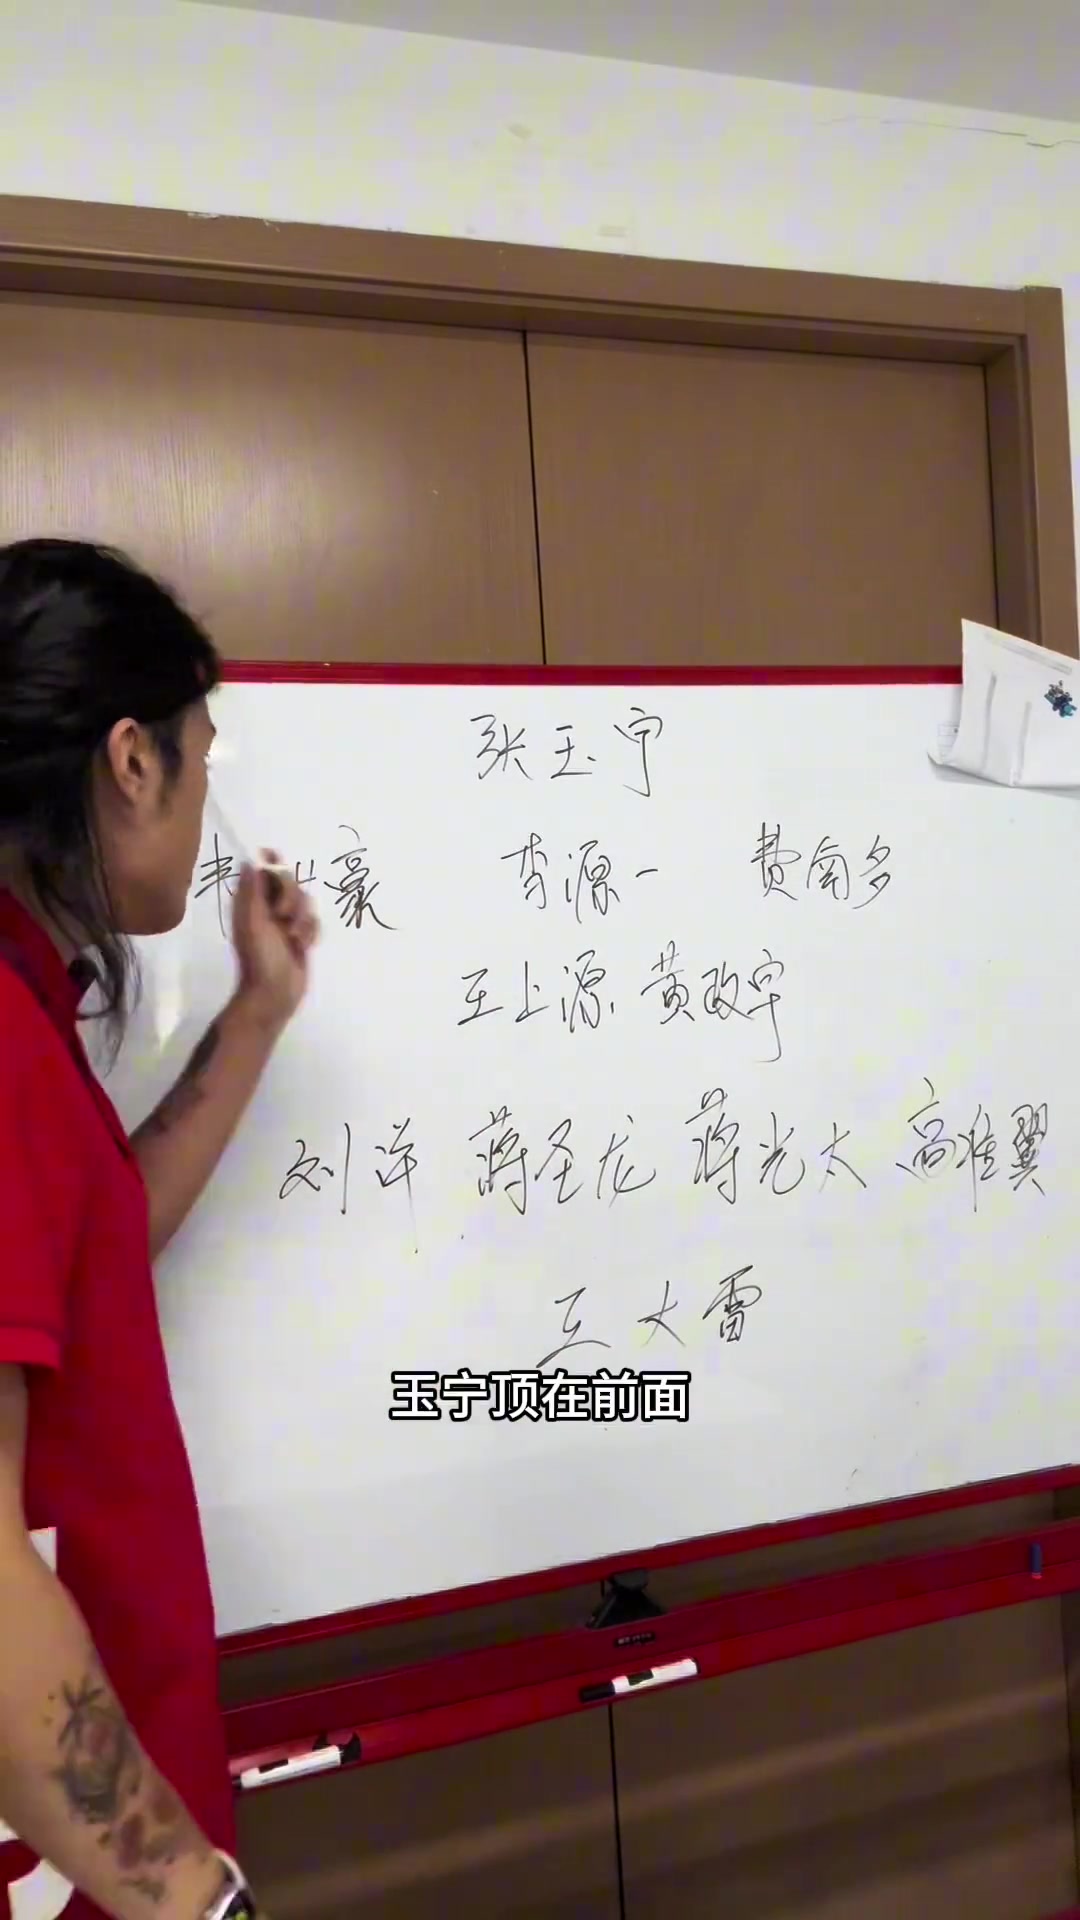 张玉宁
韦世豪 李源一 费南多
王上源 黄政宇
刘洋 蒋圣龙 蒋光太 高准翼
王大雷
玉宁顶在前面